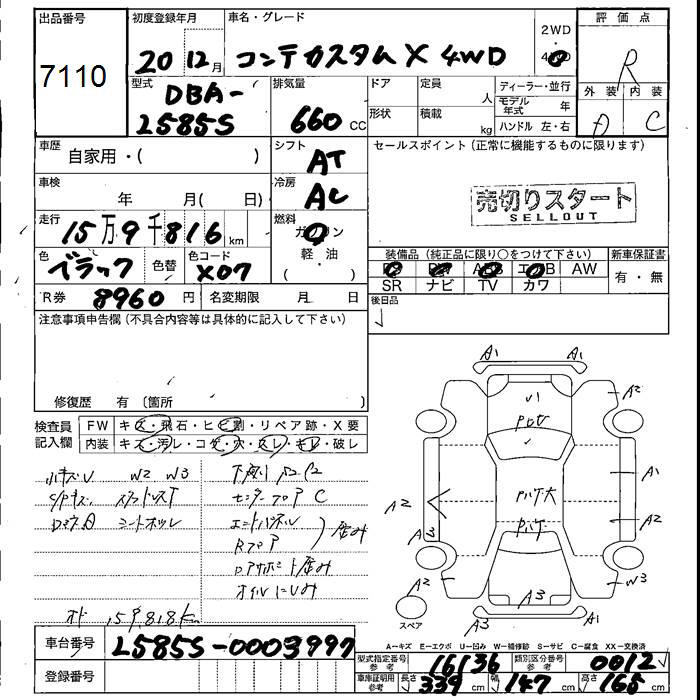 出品番号
7110
初度登録年月
20 12月
車名・グレード
コンテカスタムX 4WD
2WD
評価点
R
外装 内装
C
型式
DBA-
L585S
排気量
660 CC
ドア
形状
定員 人
積載 kg
ディーラー・並行
モデル年式 年
ハンドル 左・右
車歴
自家用・( )
シフト
AT
セールスポイント (正常に機能するものに限ります)
車検
年 月( 日)
冷房
AC
売切りスタート
SELLOUT
走行
15万9千816km
燃料
軽・油
色
ブラック
色替
色コード
X07
装備品 (純正品に限り〇をつけて下さい)
新車保証書
AW
SR ナビ TV カワ
有・無
R券
8960円
名変期限 月 日
後日品
注意事項申告欄 (不具合内容等は具体的に記入して下さい)
修復歴 有 (箇所 )
検査員
記入欄
FW キズ・飛石・ヒビ割・リペア跡・X要
内装 キズ・汚レ・コゲ・穴・スレ・キレ・破レ
小キズU W2 W3
センターフロア C
エンドパネル
Rフロア
歪み
オイルにじみ
オド 159,818km
A1
A1
A2
A1
A2
A2
A3
A2
W3
A3
A3
スペア
A-キズ E-エクボ U-凹み W-補修跡 S-サビ C-腐食 XX-交換済
車台番号
L585S-0003997
登録番号
型式指定番号 参考
16136
類別区分番号 参考
0012
車庫証明用 参考
長さ 339cm
幅 147cm
高さ 165cm